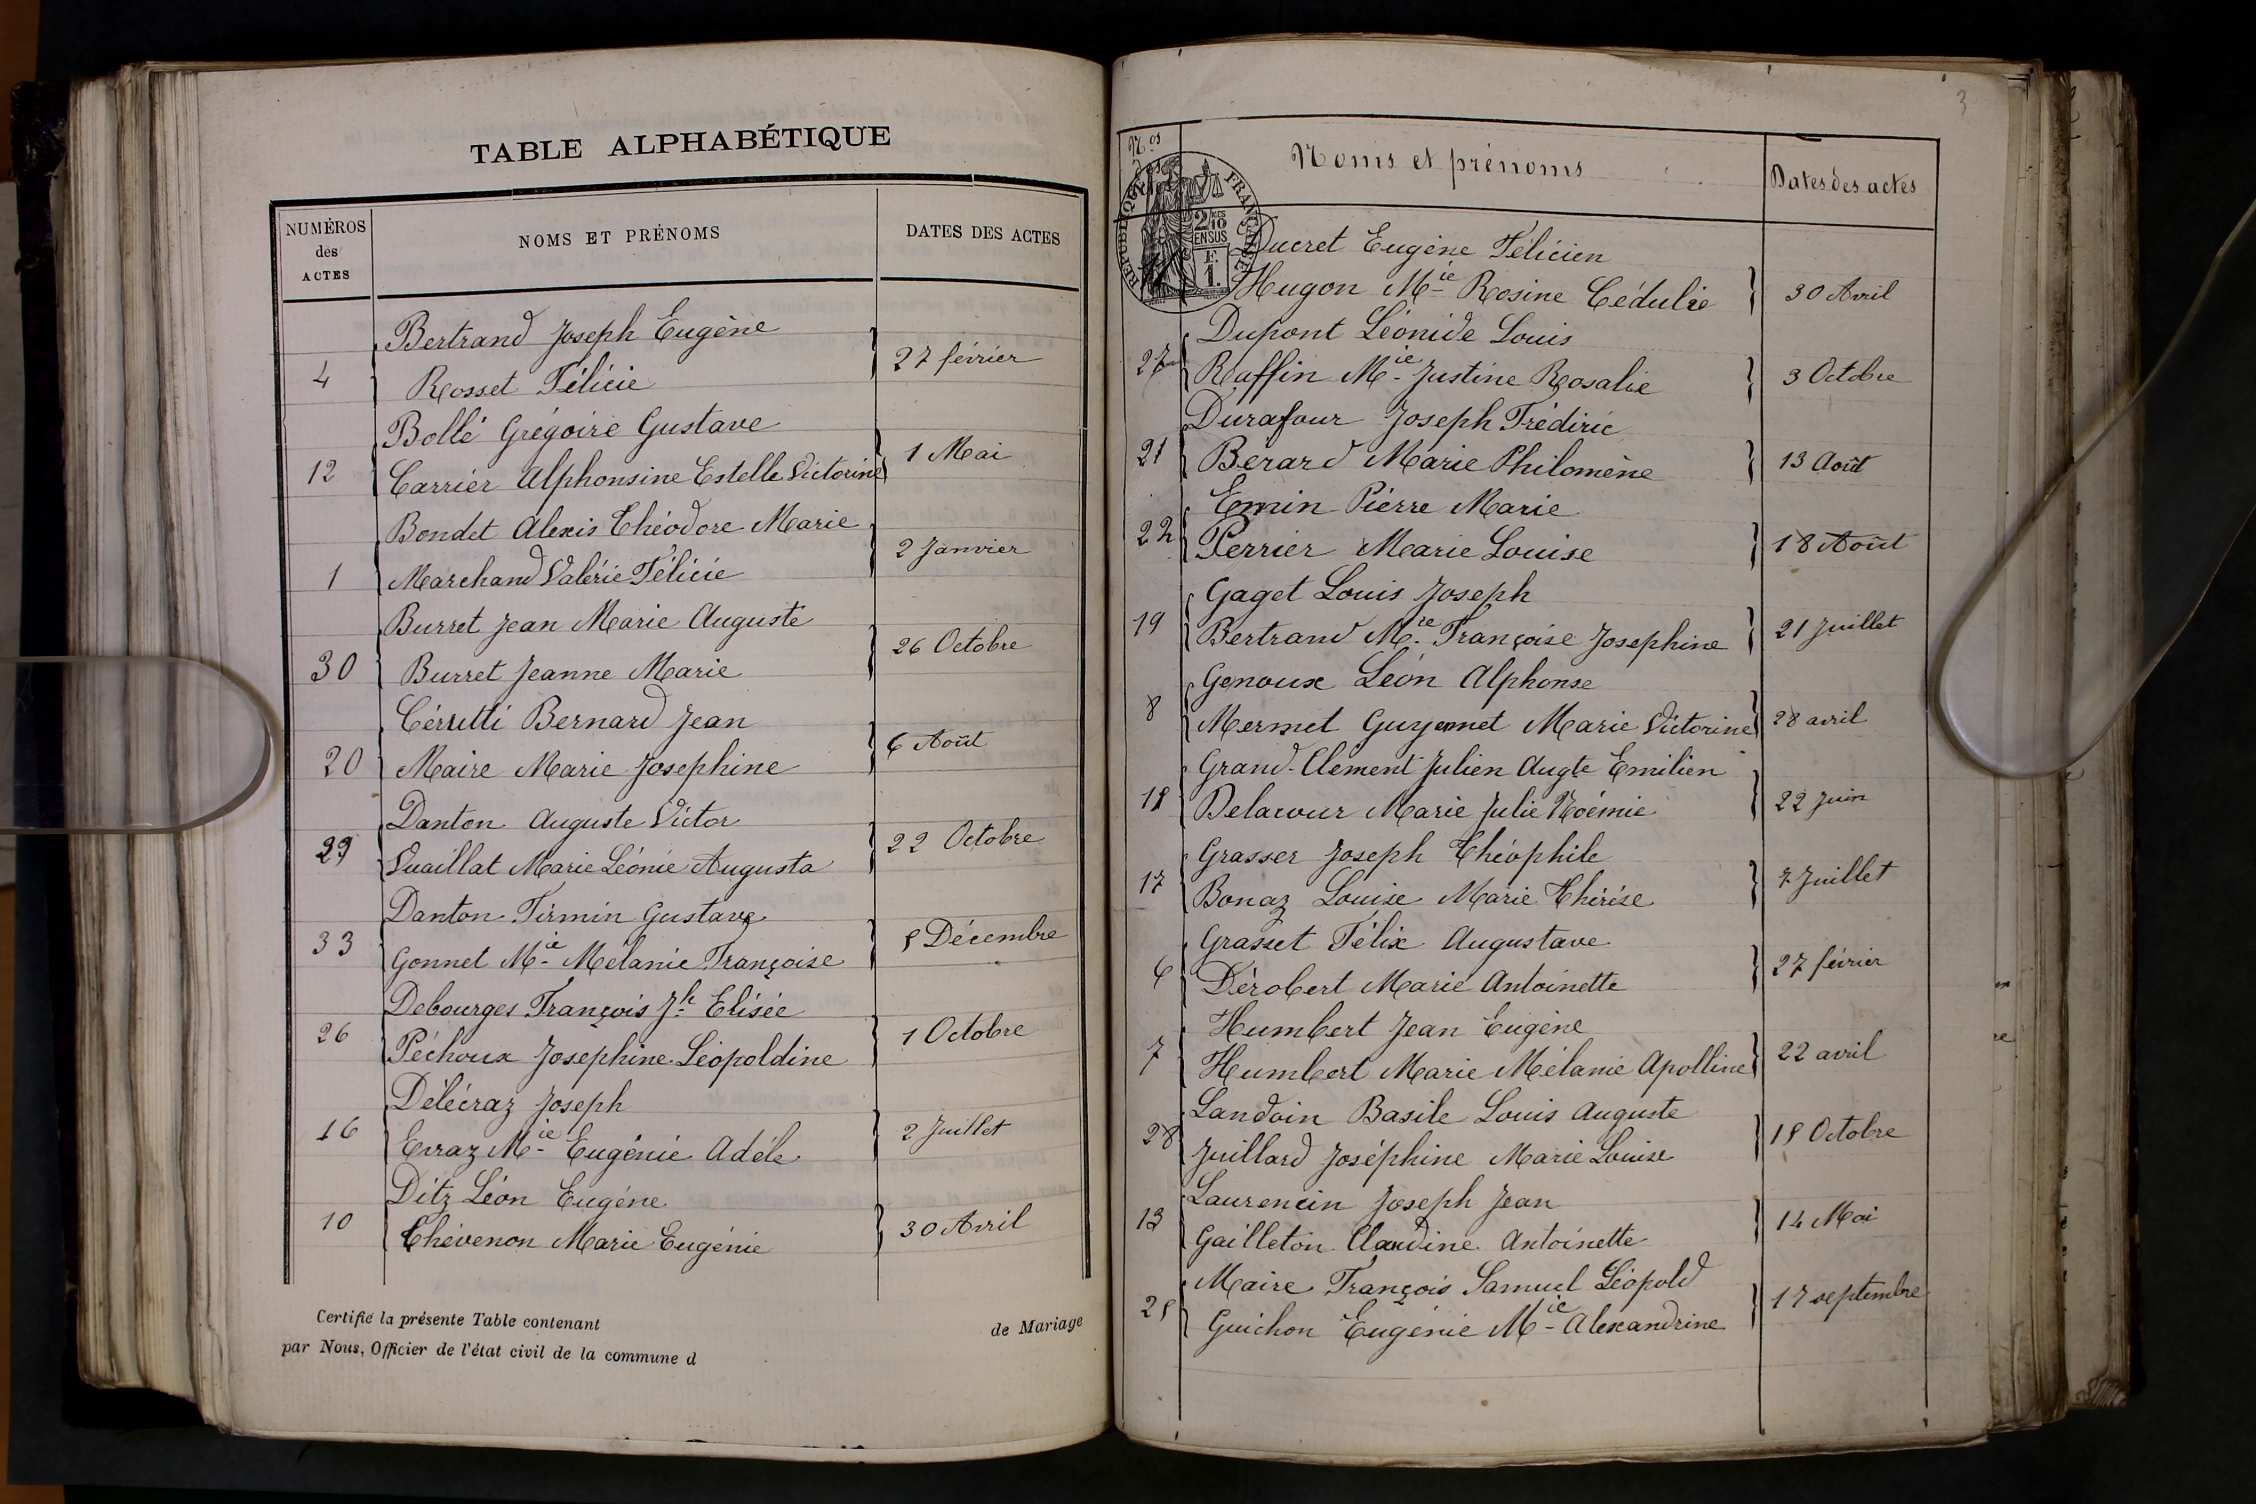 TABLE ALPHABÉTIQUE
NUMÉROS des ACTES
NOMS ET PRÉNOMS
DATES DES ACTES
Bertrand Joseph Eugène
4 Rosset Félicie 27 février
Bollé Grégoire Gustave
12 Carrier Alphonsine Estelle Victorine 1 Mai
Bondet Alexis Théodore Marie
1 Marchand Valérie Félicie 2 Janvier
Burret Jean Marie Auguste
30 Burret Jeanne Marie 26 Octobre
Cérrutti Bernard Jean
20 Maire Marie Josephine 6 Août
Danton Auguste Victor
29 Vuaillat Marie Léonie Augusta 22 Octobre
Danton Firmin Gustave
33 Gonnet Mie Mélanie Françoise 8 Décembre
Debourges François Jh Elisée
26 Péchoux Josephine Léopoldine 1 Octobre
Délécraz Joseph
16 Erraz Mie Eugénie Adèle 2 Juillet
Ditz Léon Eugène
10 Thévenon Marie Eugénie 30 Avril
Certifié la présente Table contenant de Mariage
par Nous, Officier de l'état civil de la commune d
3
Nos des
Noms et prénoms
Dates des actes
RÉPUBLIQUE FRANÇAISE
2/10 EN SUS
F. 1.
Ducret Eugène Félicien
Hugon Mie Rosine Cédulie 30 Avril
Dupont Léonide Louis
27 Raffin Mie Justine Rosalie 3 Octobre
Durafour Joseph Frédéric
21 Berard Marie Philomène 13 Août
Emin Pierre Marie
22 Perrier Marie Louise 18 Août
Gaget Louis Joseph
19 Bertrand Mie Françoise Josephine 21 Juillet
Genoux Léon Alphonse
8 Mermet Guyennet Marie Victorine 28 avril
Grand-Clement Julien Augte Emilien
18 Delacour Marie Julie Noémie 22 Juin
Grasser Joseph Théophile
17 Bonaz Louise Marie Thérése 7 Juillet
Grasset Félix Augustave
6 Dérobert Marie Antoinette 27 février
Humbert Jean Eugène
7 Humbert Marie Mélanie Apolline 22 avril
Landoin Basile Louis Auguste
28 Juillard Joséphine Marie Louise 18 Octobre
Laurencin Joseph Jean
13 Gailleton Claudine Antoinette 14 Mai
Maire François Samuel Léopold
25 Guichon Eugénie Mie Alexandrine 17 septembre